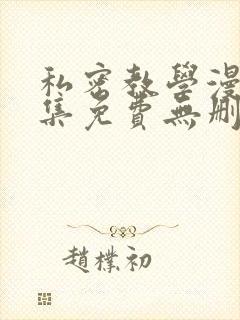 私密教學漫
集免費無刪
趙樸初